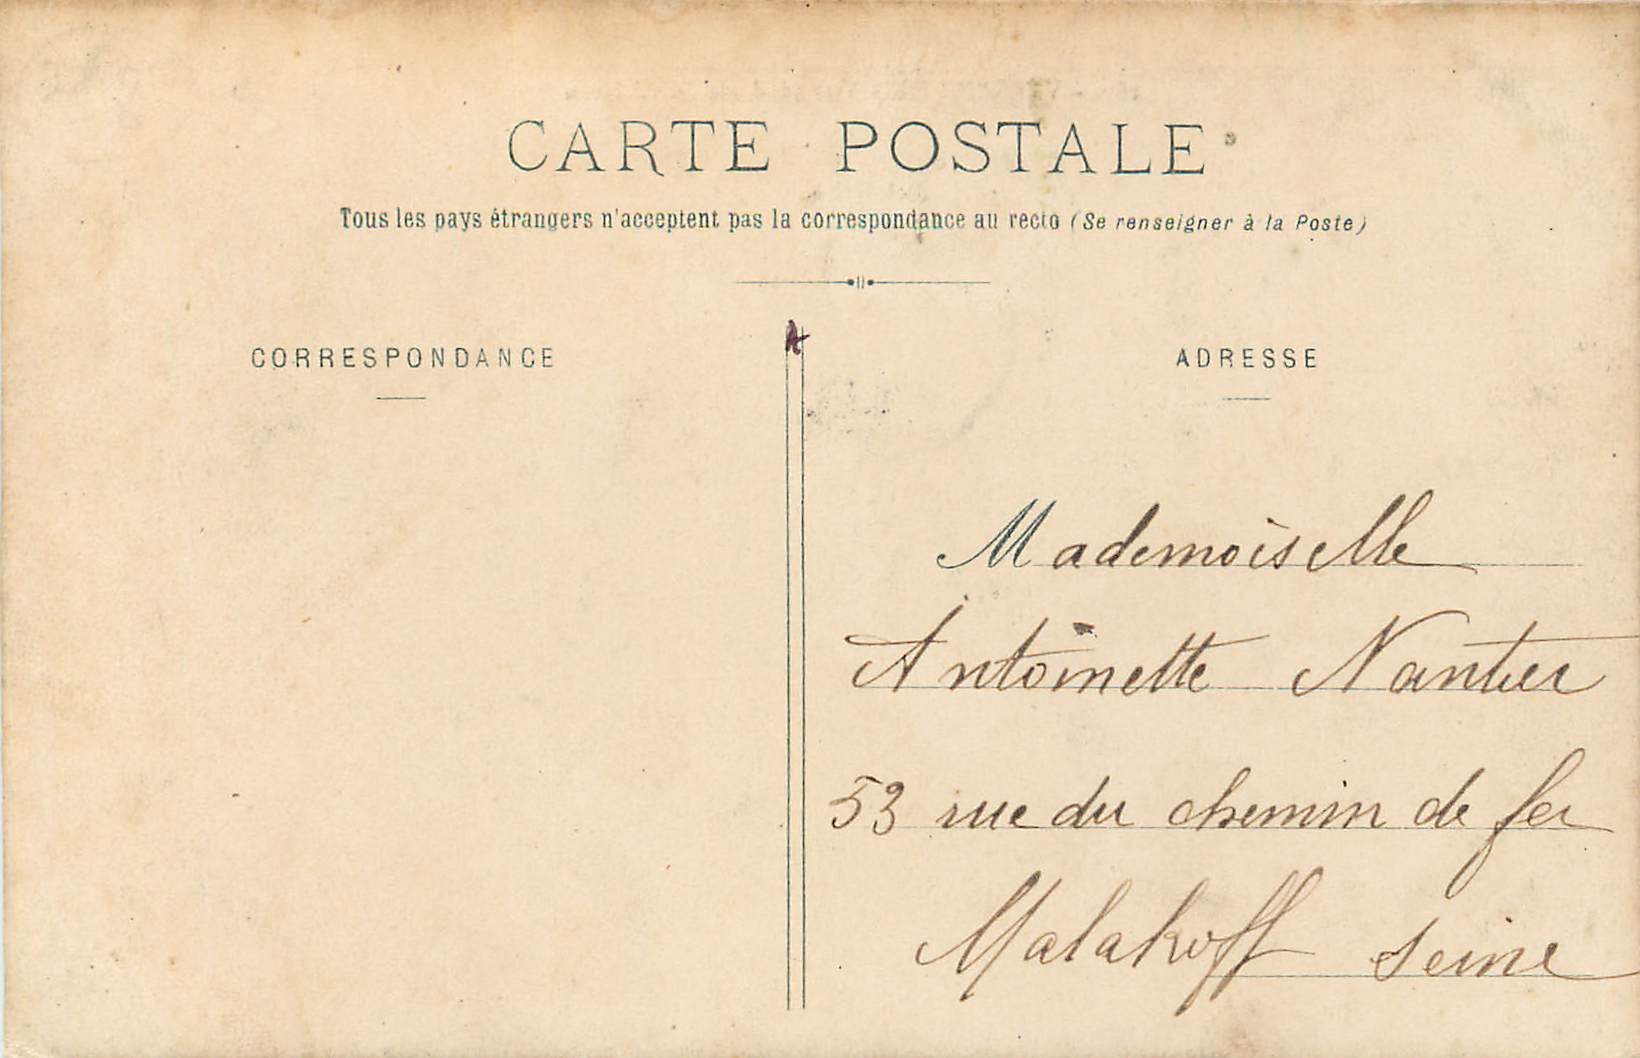 CARTE POSTALE
Tous les pays étrangers n'acceptent pas la correspondance au recto (Se renseigner à la Poste)
CORRESPONDANCE
ADRESSE
Mademoiselle
Antoinette Nantier
53 rue du chemin de fer
Malakoff Seine